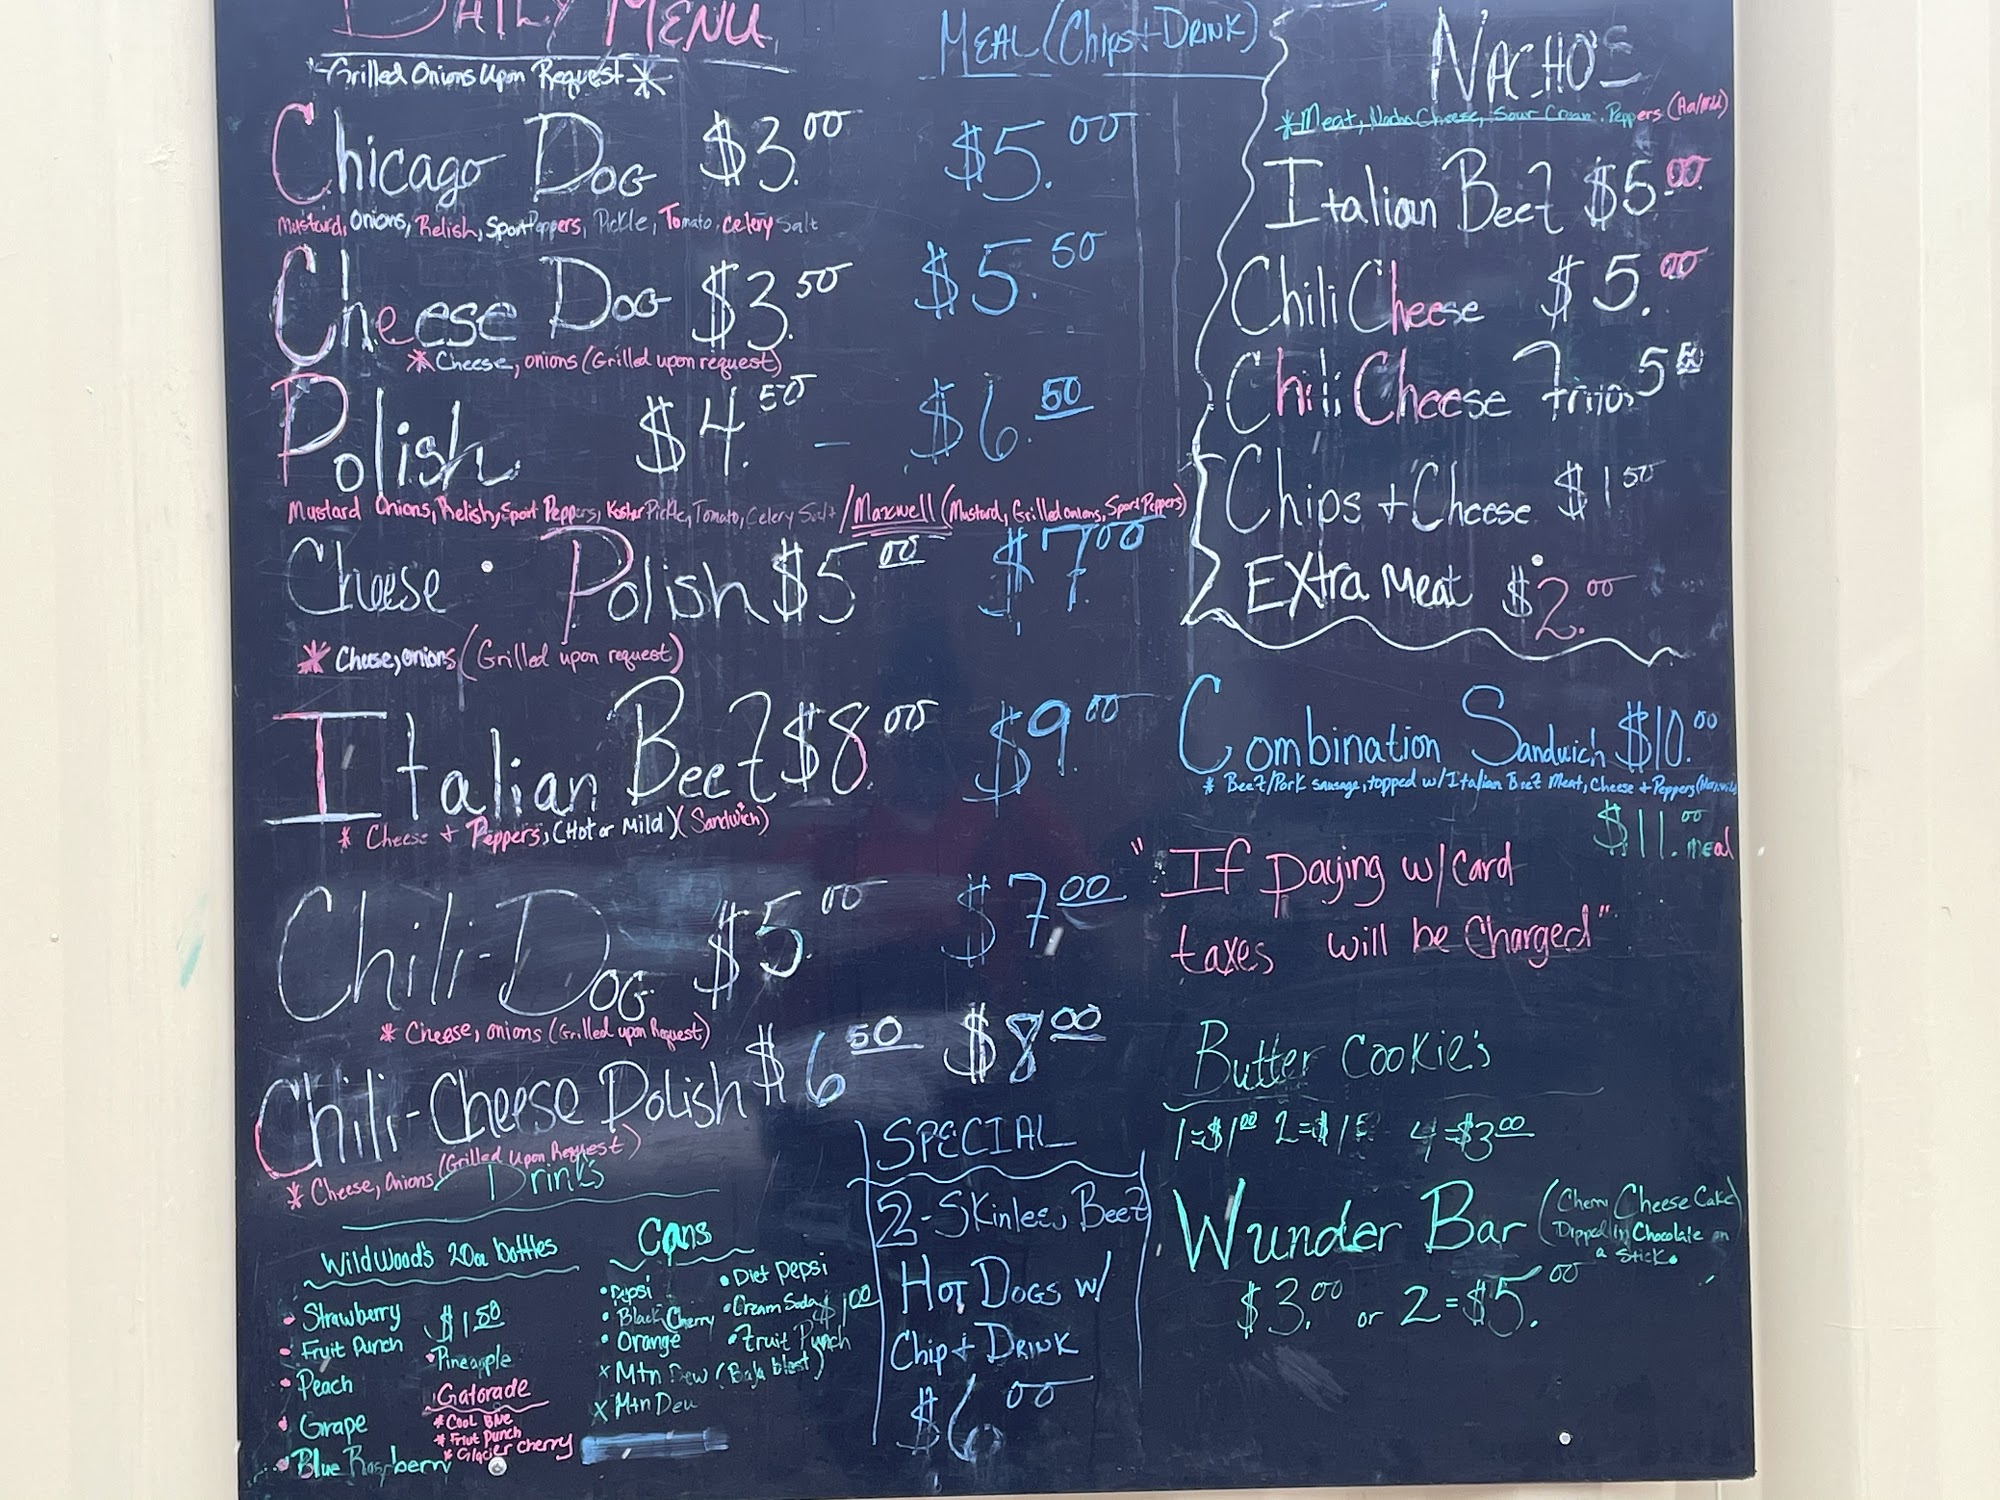 DAILY MENU
"Grilled Onions Upon Request *
MEAL (Chips + DRINK)
Chicago DOG $3.00 $5.00
Mustard, Onions, Relish, Sport Peppers, Pickle, Tomato, Celery Salt
Cheese DOG $3.50 $5.50
* Cheese, onions (Grilled upon request)
Polish $4.50 - $6.50
Mustard Onions, Relish, Sport Peppers, Kosher Pickle, Tomato, Celery Salt / Maxwell (Mustard, Grilled onions, Sport Peppers)
Cheese Polish $5.00 $7.00
* Cheese, onions (Grilled upon request)
Italian Beef $8.00 $9.00
* Cheese + Peppers, (Hot or Mild) (Sandwich)
Chili-DOG $5.00 $7.00
* Cheese, onions (Grilled upon Request)
Chili-Cheese Polish $6.50 $8.00
* Cheese, Onions (Grilled Upon Request)
NACHO'S
* Meat, Nacho Cheese, Sour Cream, Peppers
Italian Beef $5.00
Chili Cheese $5.00
Chili Cheese Fritos 5.50
Chips + Cheese $1.50
EXtra Meat $2.00
Combination Sandwich $10.00
* Beef/Pork sausage, topped w/Italian Beef Meat, Cheese + Peppers
$11.00 meal
"If paying w/Card
taxes will be Charged"
Butter Cookie's
1=$1.00 2=$1.5 4=$3.00
Wunder Bar (Cherry Cheese Cake
Dipped in Chocolate on
a Stick.
$3.00 or 2=$5.00
Drink's
WildWood's 20oz bottles
Strawberry $1.50
Fruit Punch
Pineapple
Peach
Grape
Blue Raspberry
Gatorade
* Cool Blue
* Friut Punch
* Glacier Cherry
Cans
Pepsi
Diet Pepsi
Black Cherry
Cream Soda $1.00
Orange
Fruit Punch
x Mtn Dew (Baja blast)
x Mtn Dew
SPECIAL
2-Skinless Beef
HOT DOGS w/
Chip + DRINK
$6.00